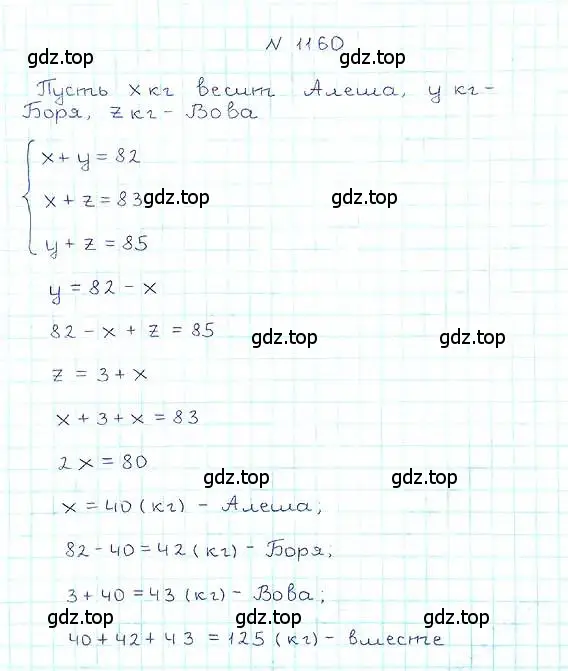 N 1160
gdz.top gdz.top
Пусть x кг весит Алеша, y кг-
Боря, z кг - Вова
x + y = 82
x + z = 83 gdz.top gdz.top
y + z = 85
y = 82 - x
82 - x + z = 85 gdz.top gdz.top
z = 3 + x
x + 3 + x = 83
2x = 80
gdz.top gdz.top
x = 40 (кг) - Алеша;
82 - 40 = 42 (кг) - Боря;
3 + 40 = 43 (кг) - Вова;
gdz.top gdz.top gdz.top
40 + 42 + 43 = 125 (кг) - вместе